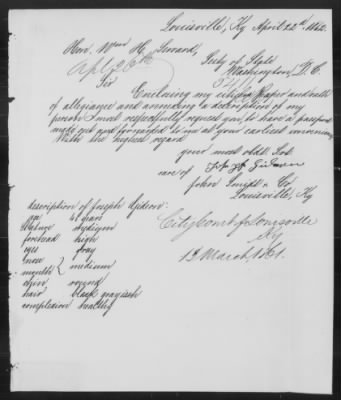 Louisville, Ky April 22d. 1862.
Hon. Wm H. Seward,
Secty of State
Washington D. C.
Apl 26th
Sir
Enclosing my citizen paper and oath
of allegiance and annexing a description of my
person I most respectfully request you, to have a passport
made out and forwarded to me at your earliest convenience
With the highest regard
your most obdt. Svt.
care of
John Smidt & Co
Louisville, Ky
description of Joseph Gideon:
age 41 years
Stature
forehead high
eyes gray
nose } medium
mouth
chin round
hair black grayish
complexion healthy
City Court of Louisville
Ky
March, 1861.